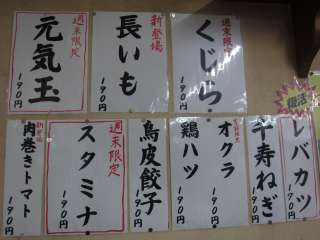 週末限定
くじら
190円
新登場
長いも
190円
週末限定
元気玉
190円
復活
レバカツ
190円
辛寿ねぎ
190円
オクラ
190円
鶏ハツ
190円
鳥皮餃子
190円
週末限定
スタミナ
190円
新登場
肉巻きトマト
190円